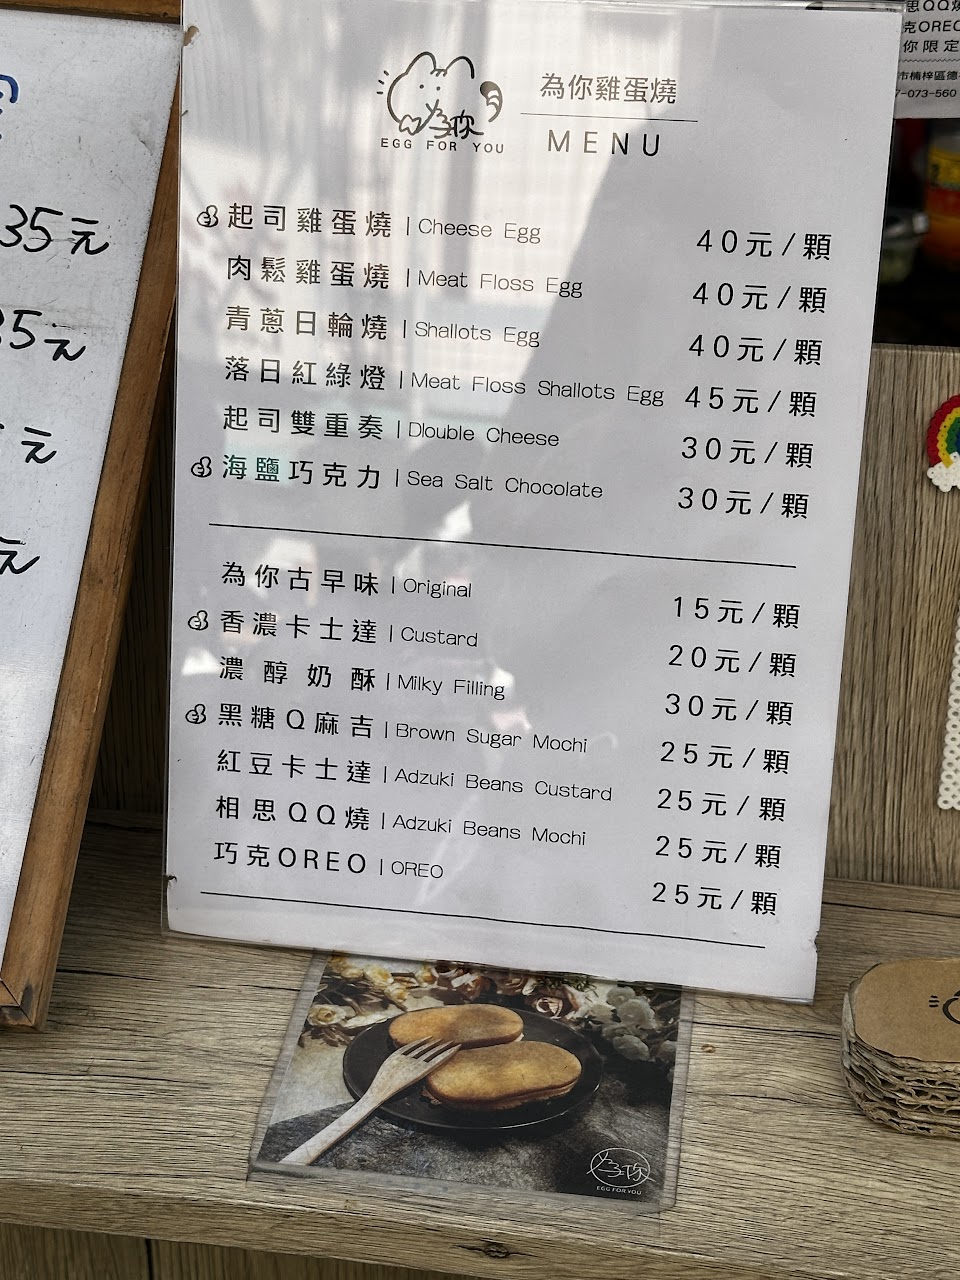 為你
EGG FOR YOU
為你雞蛋燒
MENU
起司雞蛋燒 | Cheese Egg 40元/顆
肉鬆雞蛋燒 | Meat Floss Egg 40元/顆
青蔥日輪燒 | Shallots Egg 40元/顆
落日紅綠燈 | Meat Floss Shallots Egg 45元/顆
起司雙重奏 | Dlouble Cheese 30元/顆
海鹽巧克力 | Sea Salt Chocolate 30元/顆
為你古早味 | Original 15元/顆
香濃卡士達 | Custard 20元/顆
濃醇奶酥 | Milky Filling 30元/顆
黑糖Q麻吉 | Brown Sugar Mochi 25元/顆
紅豆卡士達 | Adzuki Beans Custard 25元/顆
相思QQ燒 | Adzuki Beans Mochi 25元/顆
巧克OREO | OREO 25元/顆
35元
35元
元
元
思QQ燒
克OREO
你限定
市楠梓區德
7-073-560
為你
EGG FOR YOU